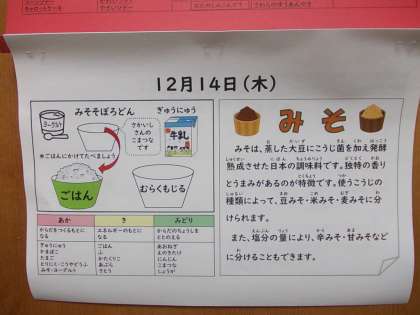 12月14日（木）
みそそぼろどん
ぎゅうにゅう
ヨーグルト
さかいし
さんの
こまつな
です
牛乳
※ごはんにかけてたべましょう
ごはん
おらくもじる
あか
き
みどり
からだをつくるもとに
なる
エネルギーのもとに
なる
からだのちょうしを
ととのえる
ぎゅうにゅう
かまぼこ
たまご
とりにく・こうやどうふ
みそ・ヨーグルト
ごはん
ふ
かたくりこ
あぶら
さとう
あおねぎ
えのきたけ
にんじん
こまつな
しょうが
みそ
みそは、蒸した大豆にこうじ菌を加え発酵
熟成させた日本の調味料です。独特の香り
とうまみがあるのが特徴です。使うこうじの
種類によって、豆みそ・米みそ・麦みそに分
けられます。
また、塩分の量により、辛みそ・甘みそなど
に分けることもできます。